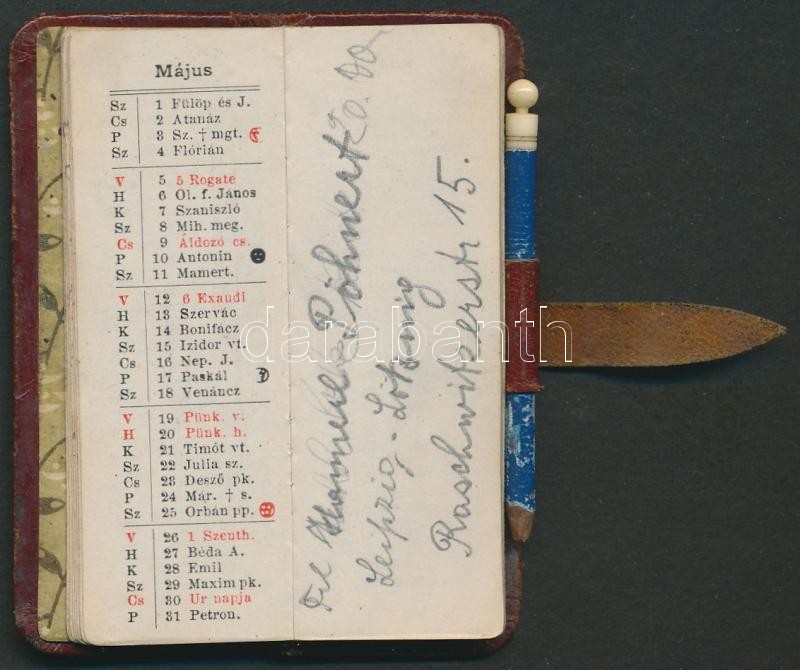 Május
Sz 1 Fülöp és J.
Cs 2 Atanáz
P 3 Sz. † mgt.
Sz 4 Flórián
V 5 5 Rogate
H 6 Ol. f. János
K 7 Szaniszló
Sz 8 Mih. meg.
Cs 9 Áldozó cs.
P 10 Antonin
Sz 11 Mamert.
V 12 6 Exaudi
H 13 Szervác
K 14 Bonifácz
Sz 15 Izidor vt.
Cs 16 Nep. J.
P 17 Paskál
Sz 18 Venáncz
V 19 Pünk. v.
H 20 Pünk. h.
K 21 Timót vt.
Sz 22 Julia sz.
Cs 23 Desző pk.
P 24 Már. † s.
Sz 25 Orbán pp.
V 26 1 Szenth.
H 27 Béda A.
K 28 Emil
Sz 29 Maxim pk.
Cs 30 Ur napja
P 31 Petron.
Löhnert
Leipzig - Lötzsnig
Raschwitzerstr 15.
darabanth